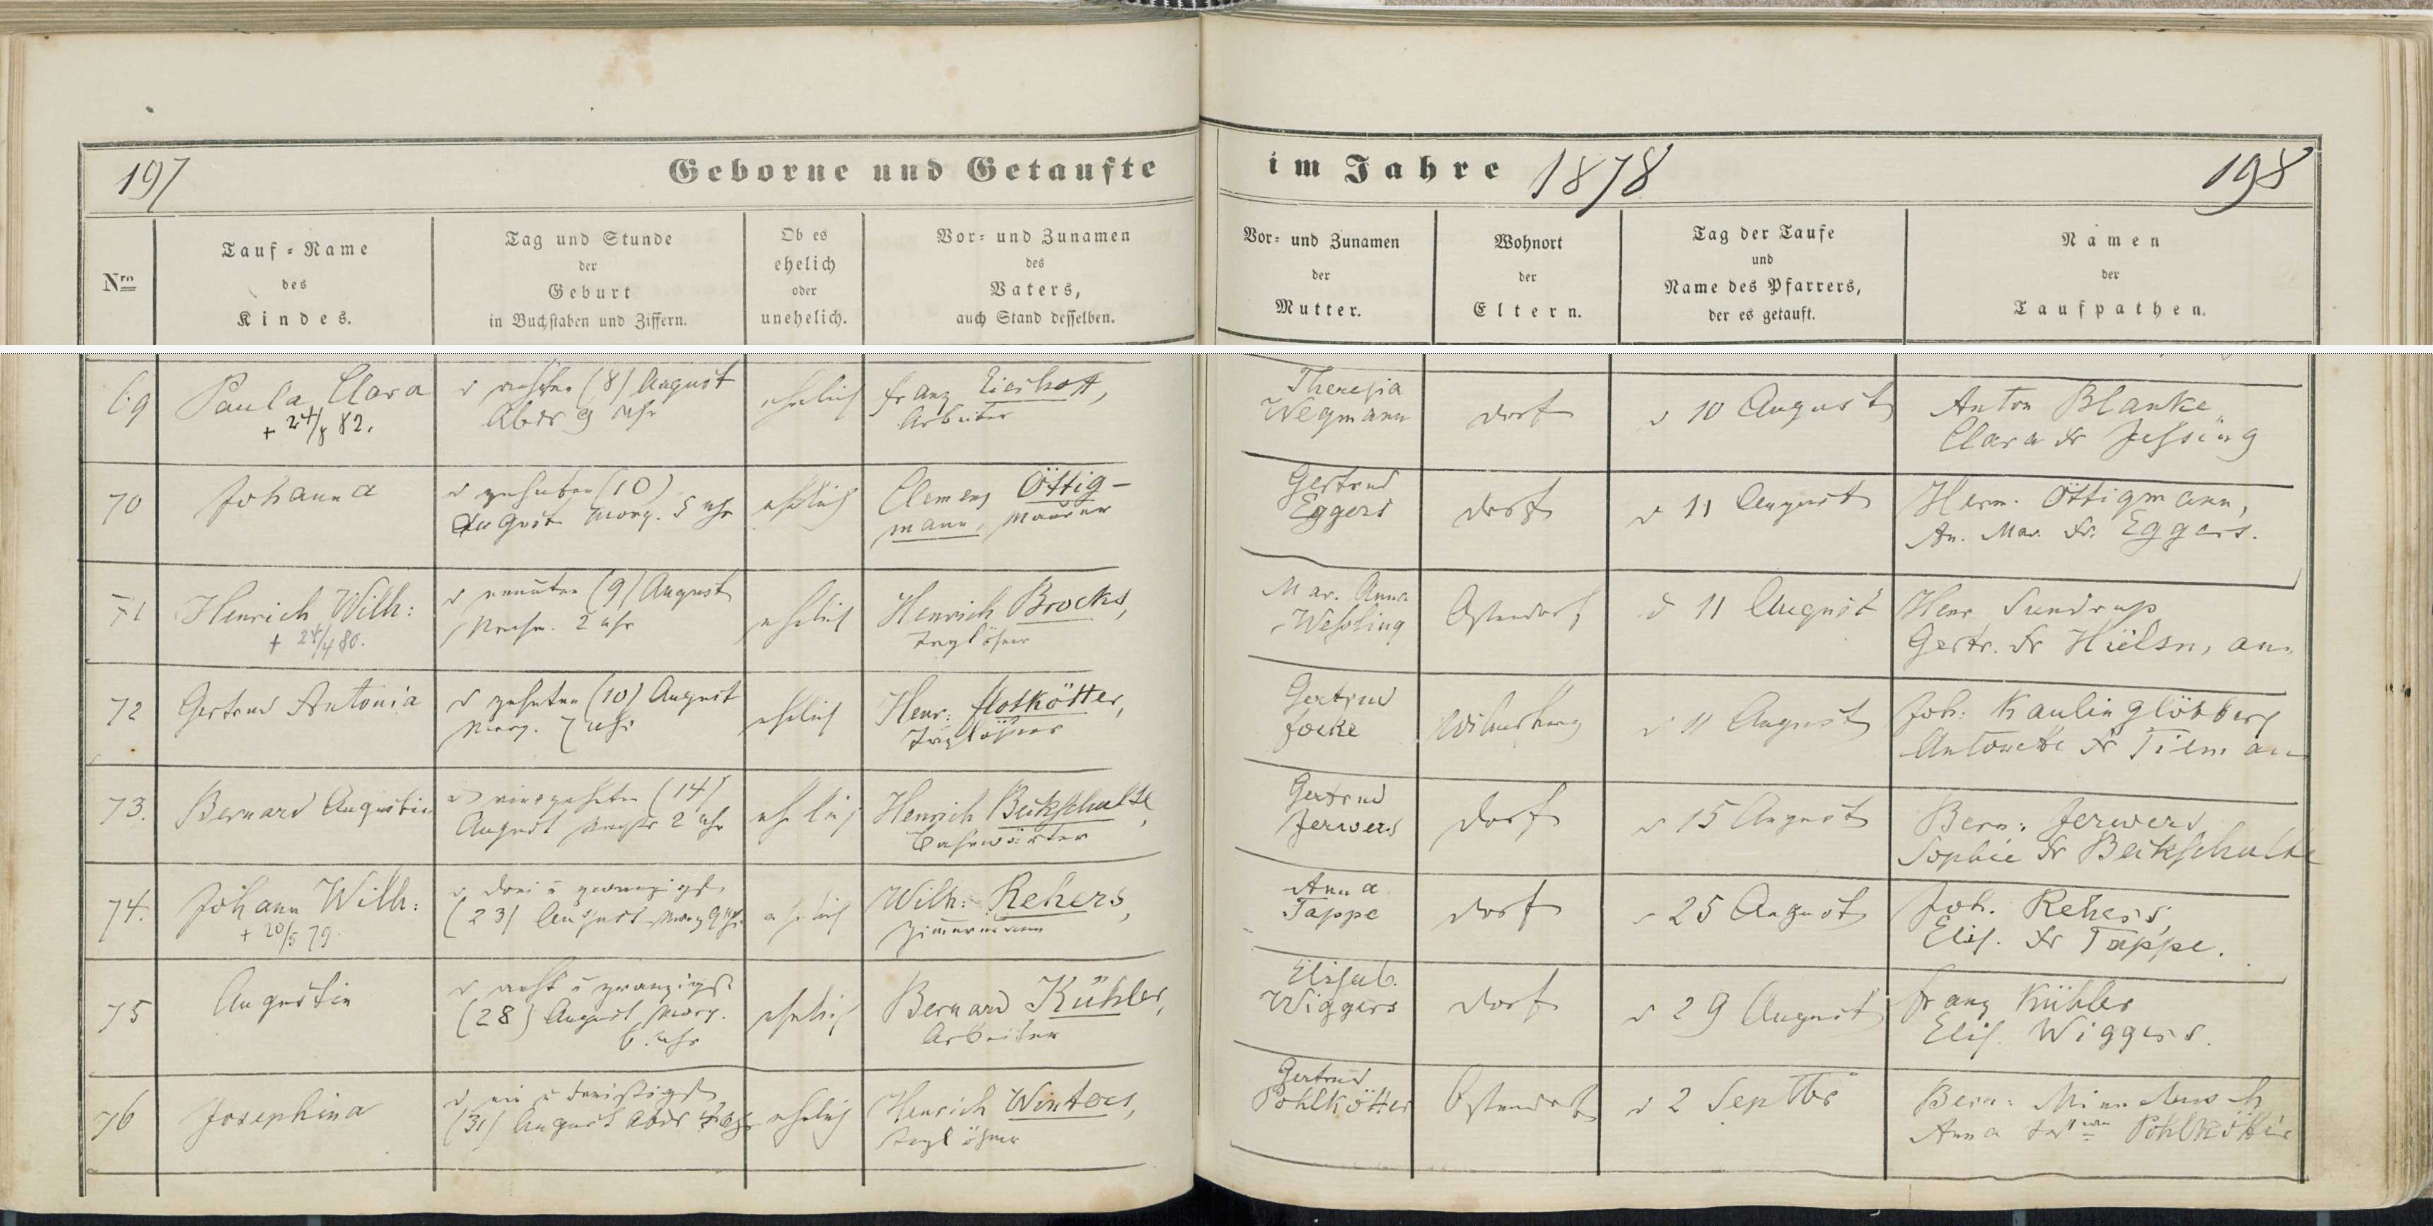 197
Geborne und Getaufte
im Jahre 1878
198
Nro
Tauf-Name
des
Kindes.
Tag und Stunde
der
Geburt
in Buchstaben und Ziffern.
Ob es
ehelich
oder
unehelich.
Vor- und Zunamen
des
Vaters,
auch Stand desselben.
Vor- und Zunamen
der
Mutter.
Wohnort
der
Eltern.
Tag der Taufe
und
Name des Pfarrers,
der es getauft.
Namen
der
Taufpathen.
69
Paula Clara
+ 24/8 82.
d achten (8) August
Abds 9 Uhr
ehelich
Franz
Arbeiter
Theresia
Wegmann
Dorf
d 10 August
Anton Blanke
Clara Fr Jessing
70
Johanna
d zehnten (10)
August Morg. 5 Uhr
ehelich
Clemens Öttig-
mann, Maurer
Gertrud
Eggers
Dorf
d 11 August
Herm. Öttigmann,
An. Mar. Fr. Eggers.
71
Henrich Wilh:
+ 24/4 80.
d neunten (9) August
Nachm. 2 Uhr
ehelich
Henrich Brocks,
Taglöhner
Mar. Anna
Wessling
Ostendorf
d 11 August
Henr. Sundrup
Gertr. Fr
72
Gertrud Antonia
d zehnten (10) August
Morg. 7 Uhr
ehelich
Henr: Flotkötter,
Taglöhner
Gertrud
Focke
Wilmsberg
d 11 August
Joh:
Antonette Fr Tieman
73.
Bernard Augustin
d vierzehnten (14)
August Nachts 2 Uhr
ehelich
Henrich Beikschulte,
Bahnwärter
Gertrud
Jerwers
Dorf
d 15 August
Bern: Jerwers
Sophie Fr Beikschulte
74.
Johann Wilh:
+ 20/5 79.
d drei u zwanzigst.
(23) August Morg 9 Uhr
ehelich
Wilh: Rehers,
Zimmermann
Anna
Tappe
Dorf
d 25 August
Joh. Rehers,
Elis. Fr Tappe.
75
Augustin
d acht u zwanzigst.
(28) August Morg.
6 Uhr
ehelich
Bernard Kühler,
Arbeiter
Elisab.
Wiggers
Dorf
d 29 August
Franz Kühler
Elis. Wiggers.
76
Josephina
d ein u dreißigst.
(31) August Abds
ehelich
Henrich Winters,
Taglöhner
Gertrud
Pohlkötter
Ostendorf
d 2 Septbr
Bern:
Anna Pohlkötter